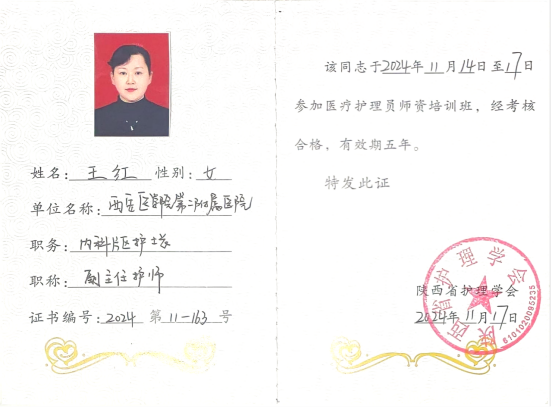 姓名：王红 性别：女
单位名称：西安医学院第二附属医院
职务：内科片区护士长
职称：副主任护师
证书编号：2024 第 11-163 号
该同志于2024年11月14日至17日
参加医疗护理员师资培训班，经考核
合格，有效期五年。
特发此证
陕西省护理学会
2024年11月17日
陕西省护理学会
6101020085235